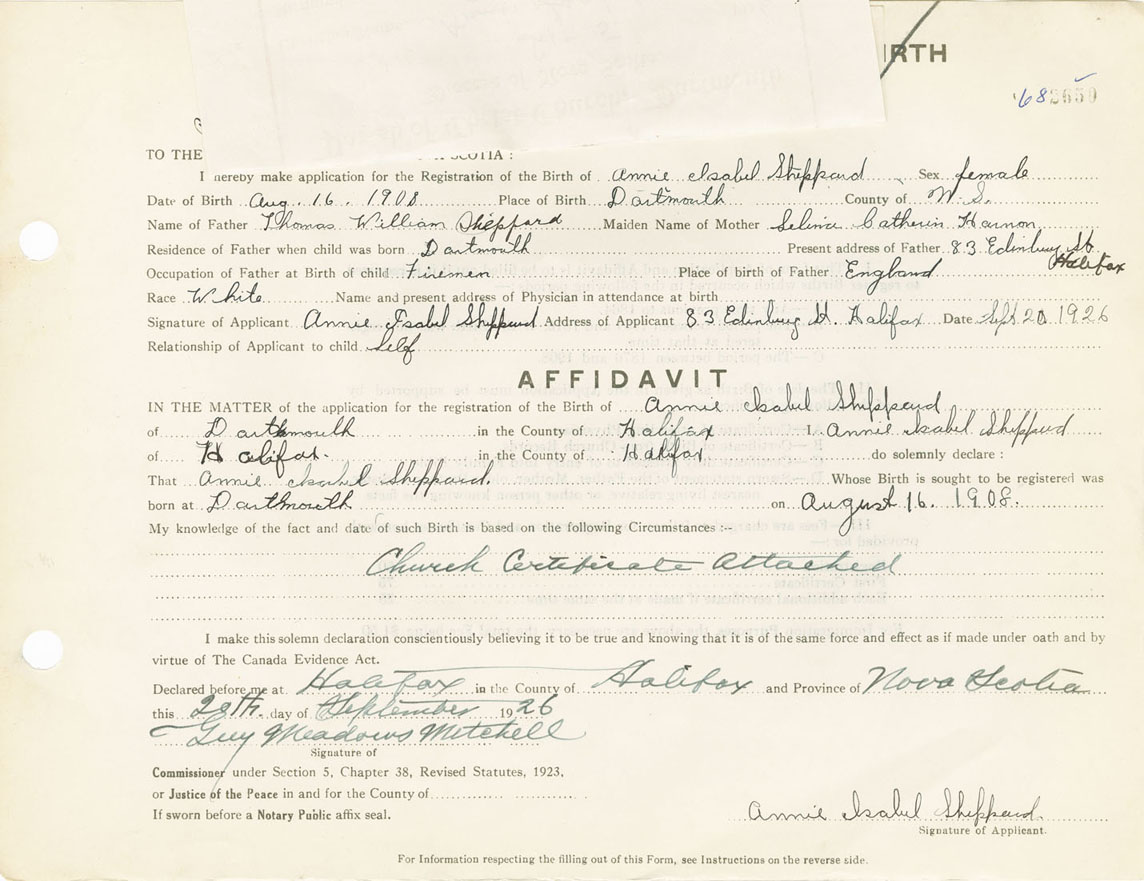 IRTH
682650
TO THE SCOTIA :
I hereby make application for the Registration of the Birth of Annie Isabel Sheppard Sex female
Date of Birth Aug. 16. 1908 Place of Birth Dartmouth County of W. S.
Name of Father Thomas William Sheppard Maiden Name of Mother Selina Catherin Harnon
Residence of Father when child was born Dartmouth Present address of Father 83 Edinburg St. Halifax
Occupation of Father at Birth of child Firemen Place of birth of Father England
Race White Name and present address of Physician in attendance at birth
Signature of Applicant Annie Isabel Sheppard Address of Applicant 83 Edinburg St. Halifax Date Sept 20 1926
Relationship of Applicant to child Self
AFFIDAVIT
IN THE MATTER of the application for the registration of the Birth of Annie Isabel Sheppard
of Dartmouth in the County of Halifax I, Annie Isabel Sheppard
of Halifax. in the County of Halifax do solemnly declare :
That Annie Isabel Sheppard. Whose Birth is sought to be registered was
born at Dartmouth on August 16. 1908.
My knowledge of the fact and date of such Birth is based on the following Circumstances :-
Church Certificate Attached
I make this solemn declaration conscientiously believing it to be true and knowing that it is of the same force and effect as if made under oath and by
virtue of The Canada Evidence Act.
Declared before me at Halifax in the County of Halifax and Province of Nova Scotia
this 20th. day of September 1926
Guy Meadows Mitchell
Signature of
Commissioner under Section 5, Chapter 38, Revised Statutes, 1923,
or Justice of the Peace in and for the County of
If sworn before a Notary Public affix seal.
Annie Isabel Sheppard.
Signature of Applicant.
For Information respecting the filling out of this Form, see Instructions on the reverse side.